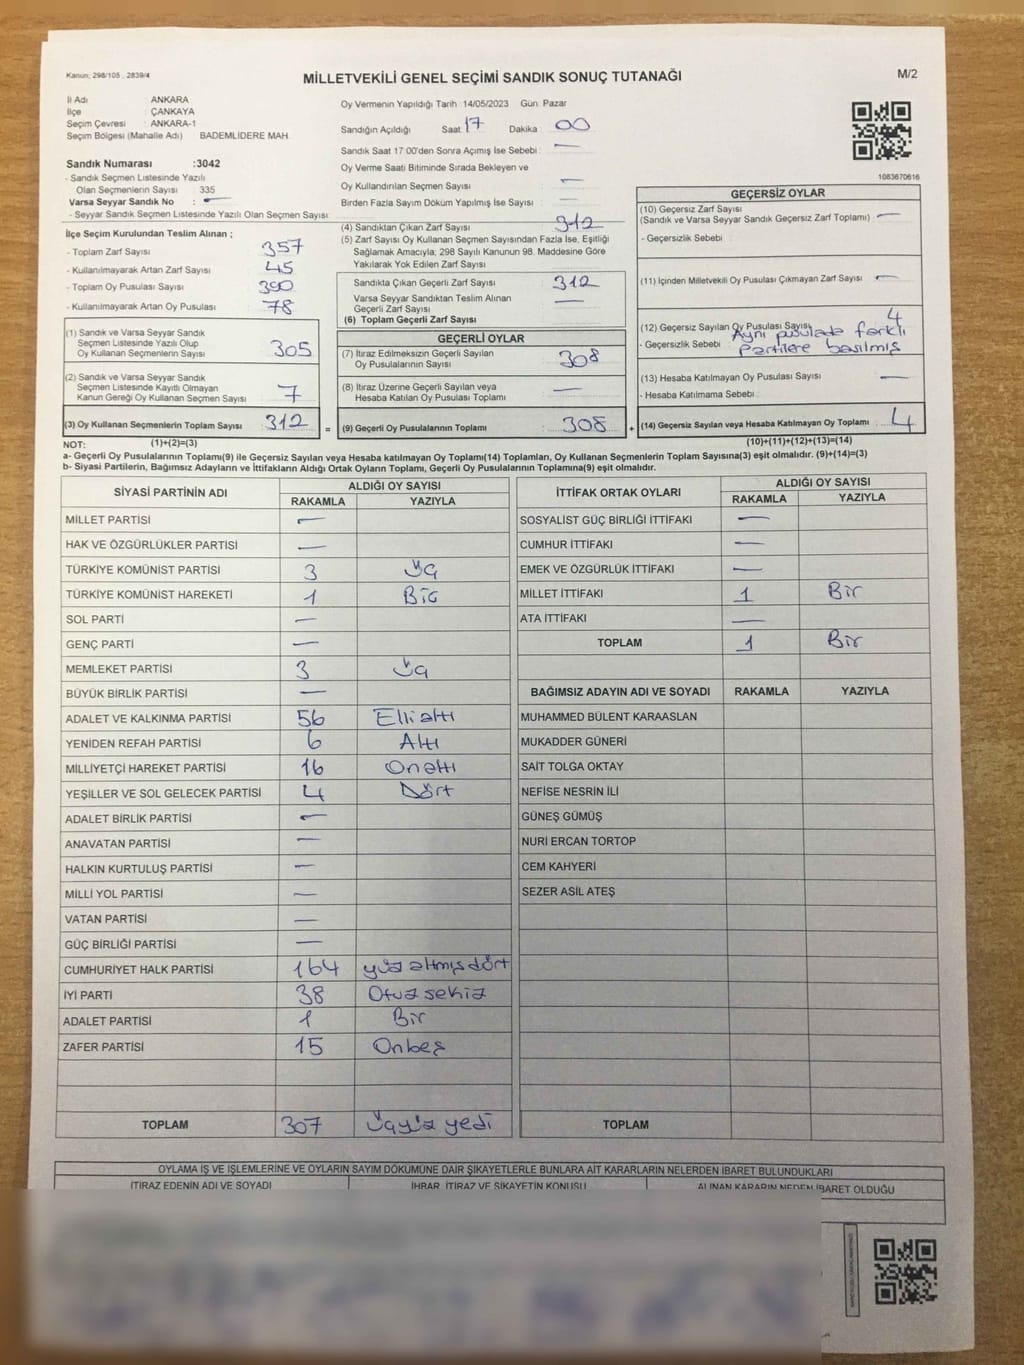 Kanun; 298/105 , 2839/4
MİLLETVEKİLİ GENEL SEÇİMİ SANDIK SONUÇ TUTANAĞI
M/2
İl Adı ANKARA
İlçe : ÇANKAYA
Seçim Çevresi : ANKARA-1
Seçim Bölgesi (Mahalle Adı) BADEMLİDERE MAH.
Sandık Numarası :3042
- Sandık Seçmen Listesinde Yazılı
Olan Seçmenlerin Sayısı 335
Varsa Seyyar Sandık No : —
- Seyyar Sandık Seçmen Listesinde Yazılı Olan Seçmen Sayısı:
İlçe Seçim Kurulundan Teslim Alınan ;
- Toplam Zarf Sayısı 357
- Kullanılmayarak Artan Zarf Sayısı 45
- Toplam Oy Pusulası Sayısı 390
- Kullanılmayarak Artan Oy Pusulası 78
(1) Sandık ve Varsa Seyyar Sandık
Seçmen Listesinde Yazılı Olup
Oy Kullanan Seçmenlerin Sayısı 305
(2) Sandık ve Varsa Seyyar Sandık
Seçmen Listesinde Kayıtlı Olmayan
Kanun Gereği Oy Kullanan Seçmen Sayısı 7
(3) Oy Kullanan Seçmenlerin Toplam Sayısı 312 =
Oy Vermenin Yapıldığı Tarih : 14/05/2023 Gün: Pazar
Sandığın Açıldığı Saat: 17 Dakika : 00
Sandık Saat 17:00'den Sonra Açımış İse Sebebi : —
Oy Verme Saati Bitiminde Sırada Bekleyen ve
Oy Kullandırılan Seçmen Sayısı : —
Birden Fazla Sayım Döküm Yapılmış İse Sayısı : —
(4) Sandıktan Çıkan Zarf Sayısı : 312
(5) Zarf Sayısı Oy Kullanan Seçmen Sayısından Fazla İse, Eşitliği
Sağlamak Amacıyla; 298 Sayılı Kanunun 98. Maddesine Göre
Yakılarak Yok Edilen Zarf Sayısı
Sandıkta Çıkan Geçerli Zarf Sayısı 312
Varsa Seyyar Sandıktan Teslim Alınan
Geçerli Zarf Sayısı —
(6) Toplam Geçerli Zarf Sayısı
GEÇERLİ OYLAR
(7) İtiraz Edilmeksizin Geçerli Sayılan
Oy Pusulalarının Sayısı 308
(8) İtiraz Üzerine Geçerli Sayılan veya
Hesaba Katılan Oy Pusulası Toplamı —
(9) Geçerli Oy Pusulalarının Toplamı 308 +
1083670616
GEÇERSİZ OYLAR
(10) Geçersiz Zarf Sayısı
(Sandık ve Varsa Seyyar Sandık Geçersiz Zarf Toplamı) —
- Geçersizlik Sebebi :
(11) İçinden Milletvekili Oy Pusulası Çıkmayan Zarf Sayısı : —
(12) Geçersiz Sayılan Oy Pusulası Sayısı 4
- Geçersizlik Sebebi : Aynı pusulada farklı
Partilere basılmış
(13) Hesaba Katılmayan Oy Pusulası Sayısı : —
- Hesaba Katılmama Sebebi :
(14) Geçersiz Sayılan veya Hesaba Katılmayan Oy Toplamı : 4
NOT: (1)+(2)=(3)
(10)+(11)+(12)+(13)=(14)
a- Geçerli Oy Pusulalarının Toplamı(9) ile Geçersiz Sayılan veya Hesaba katılmayan Oy Toplamı(14) Toplamları, Oy Kullanan Seçmenlerin Toplam Sayısına(3) eşit olmalıdır. (9)+(14)=(3)
b- Siyasi Partilerin, Bağımsız Adayların ve İttifakların Aldığı Ortak Oyların Toplamı, Geçerli Oy Pusulalarının Toplamına(9) eşit olmalıdır.
SİYASİ PARTİNİN ADI ALDIĞI OY SAYISI
RAKAMLA YAZIYLA
MİLLET PARTİSİ —
HAK VE ÖZGÜRLÜKLER PARTİSİ —
TÜRKİYE KOMÜNİST PARTİSİ 3 Üç
TÜRKİYE KOMÜNİST HAREKETİ 1 Bir
SOL PARTİ —
GENÇ PARTİ —
MEMLEKET PARTİSİ 3 Üç
BÜYÜK BİRLİK PARTİSİ —
ADALET VE KALKINMA PARTİSİ 56 Elli altı
YENİDEN REFAH PARTİSİ 6 Altı
MİLLİYETÇİ HAREKET PARTİSİ 16 Onaltı
YEŞİLLER VE SOL GELECEK PARTİSİ 4 Dört
ADALET BİRLİK PARTİSİ —
ANAVATAN PARTİSİ —
HALKIN KURTULUŞ PARTİSİ —
MİLLİ YOL PARTİSİ —
VATAN PARTİSİ —
GÜÇ BİRLİĞİ PARTİSİ —
CUMHURİYET HALK PARTİSİ 164 yüz altmış dört
İYİ PARTİ 38 Otuz sekiz
ADALET PARTİSİ 1 Bir
ZAFER PARTİSİ 15 Onbeş
TOPLAM 307 Üçyüz yedi
İTTİFAK ORTAK OYLARI ALDIĞI OY SAYISI
RAKAMLA YAZIYLA
SOSYALİST GÜÇ BİRLİĞİ İTTİFAKI —
CUMHUR İTTİFAKI —
EMEK VE ÖZGÜRLÜK İTTİFAKI —
MİLLET İTTİFAKI 1 Bir
ATA İTTİFAKI —
TOPLAM 1 Bir
BAĞIMSIZ ADAYIN ADI VE SOYADI RAKAMLA YAZIYLA
MUHAMMED BÜLENT KARAASLAN
MUKADDER GÜNERİ
SAİT TOLGA OKTAY
NEFİSE NESRİN İLİ
GÜNEŞ GÜMÜŞ
NURİ ERCAN TORTOP
CEM KAHYERİ
SEZER ASİL ATEŞ
TOPLAM
OYLAMA İŞ VE İŞLEMLERİNE VE OYLARIN SAYIM DÖKÜMÜNE DAİR ŞİKAYETLERLE BUNLARA AİT KARARLARIN NELERDEN İBARET BULUNDUKLARI
İTİRAZ EDENİN ADI VE SOYADI İHBAR, İTİRAZ VE ŞİKAYETİN KONUSU ALINAN KARARIN NEDEN İBARET OLDUĞU